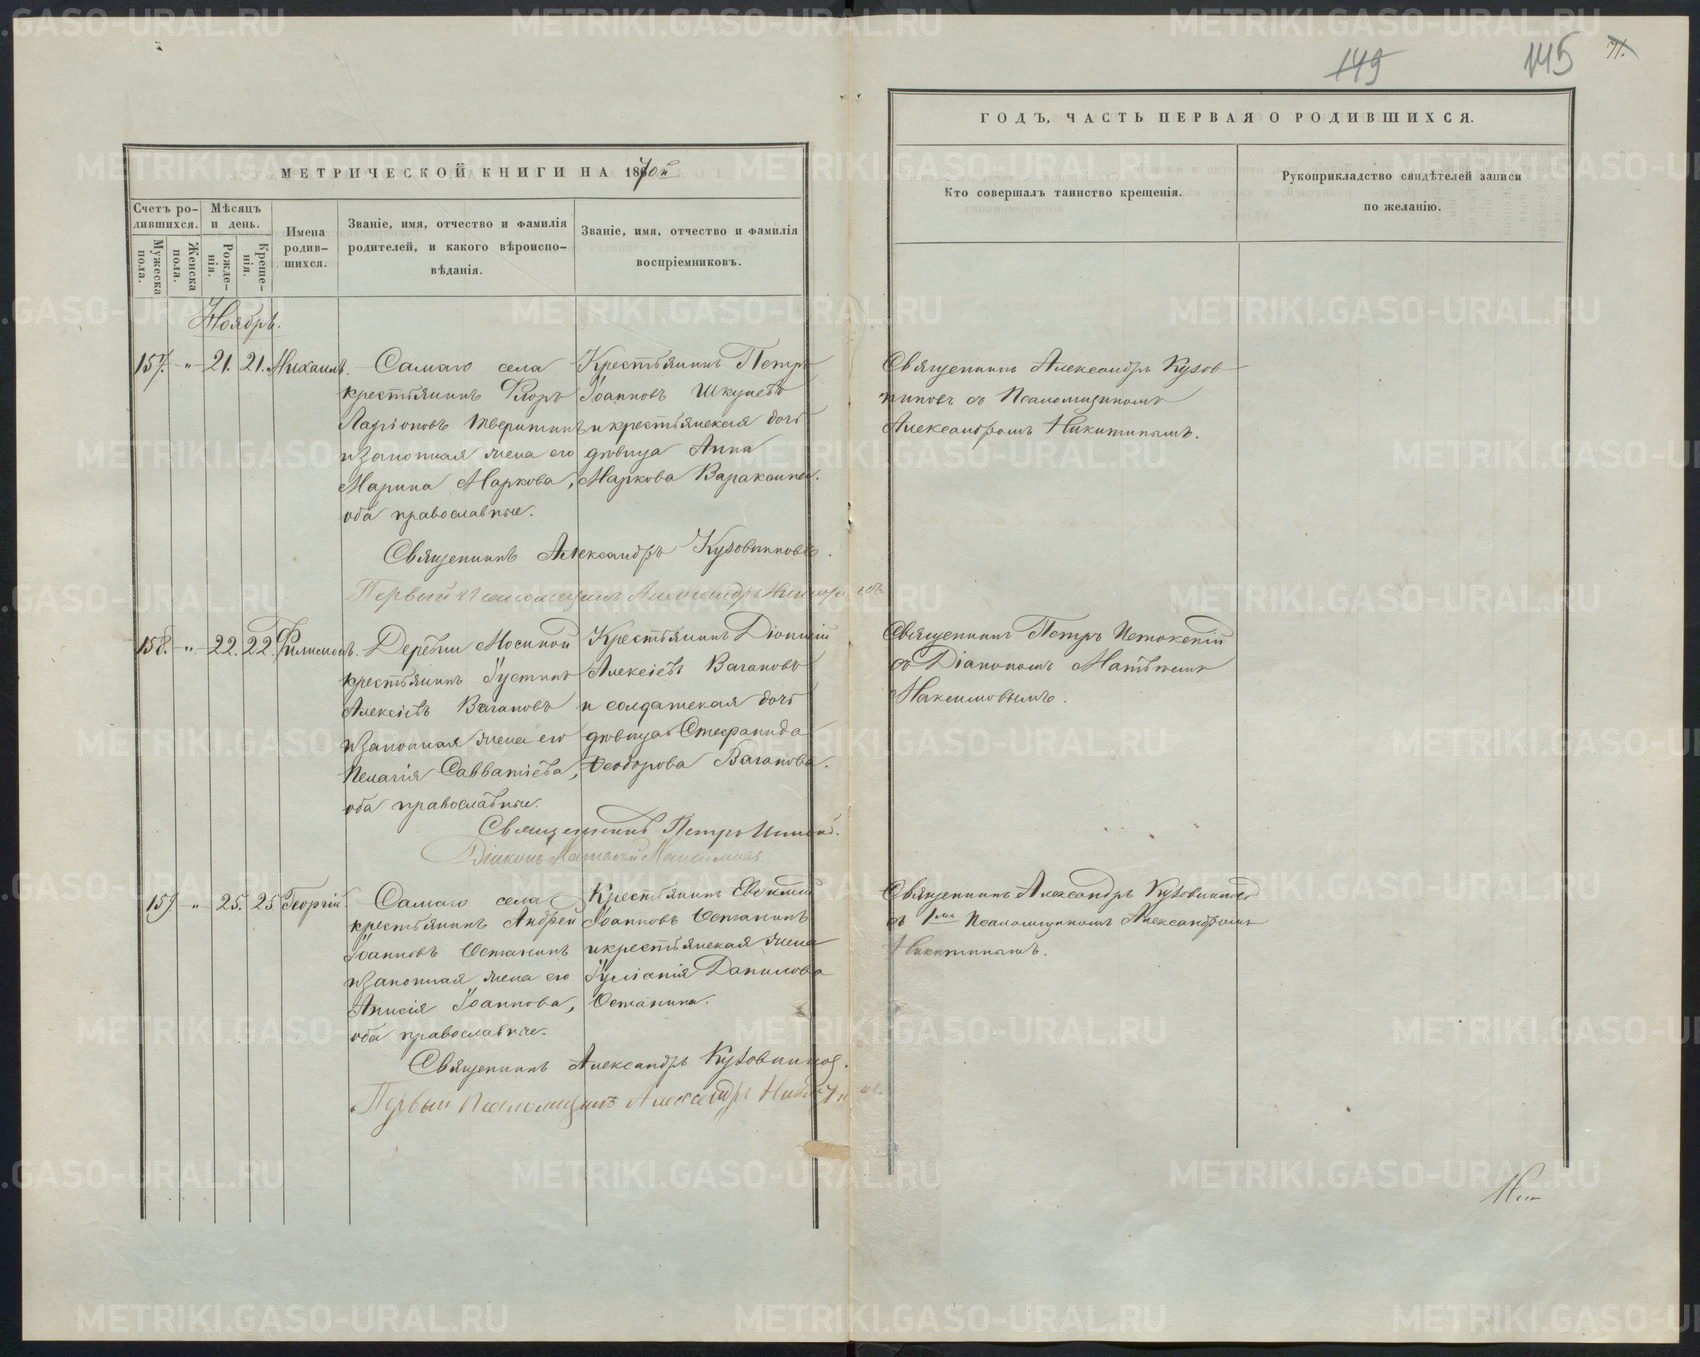 МЕТРИЧЕСКОЙ КНИГИ НА 1870й
Счетъ ро-
дившихся.
Мужеска
пола.
Женска
пола.
Мѣсяцъ
и день.
Рожде-
нія.
Креще-
нія.
Имена
родив-
шихся.
Званіе, имя, отчество и фамилія
родителей, и какого вѣроиспо-
вѣданія.
Званіе, имя, отчество и фамилія
воспріемниковъ.
Ноябрь.
157. " 21. 21. Михаилъ.
Самаго села
крестьянинъ Флоръ
Ларіоновъ Тверитинъ
и законная жена его
Марина Маркова,
оба православные.
Крестьянинъ Петръ
Іоанновъ
и крестьянская дочь
дѣвица Анна
Маркова Варакина.
Священникъ Александръ Кузовниковъ.
Первый Псаломщикъ Александръ Никитинъ
158. " 22. 22. Филимонъ.
Деревни Мосиной
крестьянинъ Іустинъ
Алексіевъ Вагановъ
и законная жена его
Пелагія Савватіева,
оба православные.
Крестьянинъ Діонисій
Алексіевъ Вагановъ
и солдатская дочь
дѣвица Стефанида
Ѳеодорова Ваганова.
Священникъ Петръ
Діаконъ Матвей Максимовъ
159 " 25. 25 Георгій
Самаго села
крестьянинъ Андрей
Іоанновъ Останинъ
и законная жена его
Анисія Іоаннова,
оба православные.
Крестьянинъ Евсимій
Іоанновъ Останинъ
и крестьянская жена
Іуліанія Данилова
Останина.
Священникъ Александръ Кузовников.
Первый Псаломщикъ Александръ Никитин
149
145
71.
ГОДЪ, ЧАСТЬ ПЕРВАЯ О РОДИВШИХСЯ.
Кто совершалъ таинство крещенія.
Рукоприкладство свидѣтелей записи
по желанію.
Священникъ Александръ Кузов
никовъ съ Псаломщикомъ
Александромъ Никитинымъ.
Священникъ Петръ
съ Діакономъ Матвеемъ
Максимовымъ.
Священникъ Александръ Кузовниковъ
съ 1мъ Псаломщикомъ Александромъ
Никитинымъ.
METRIKI.GASO-URAL.RU